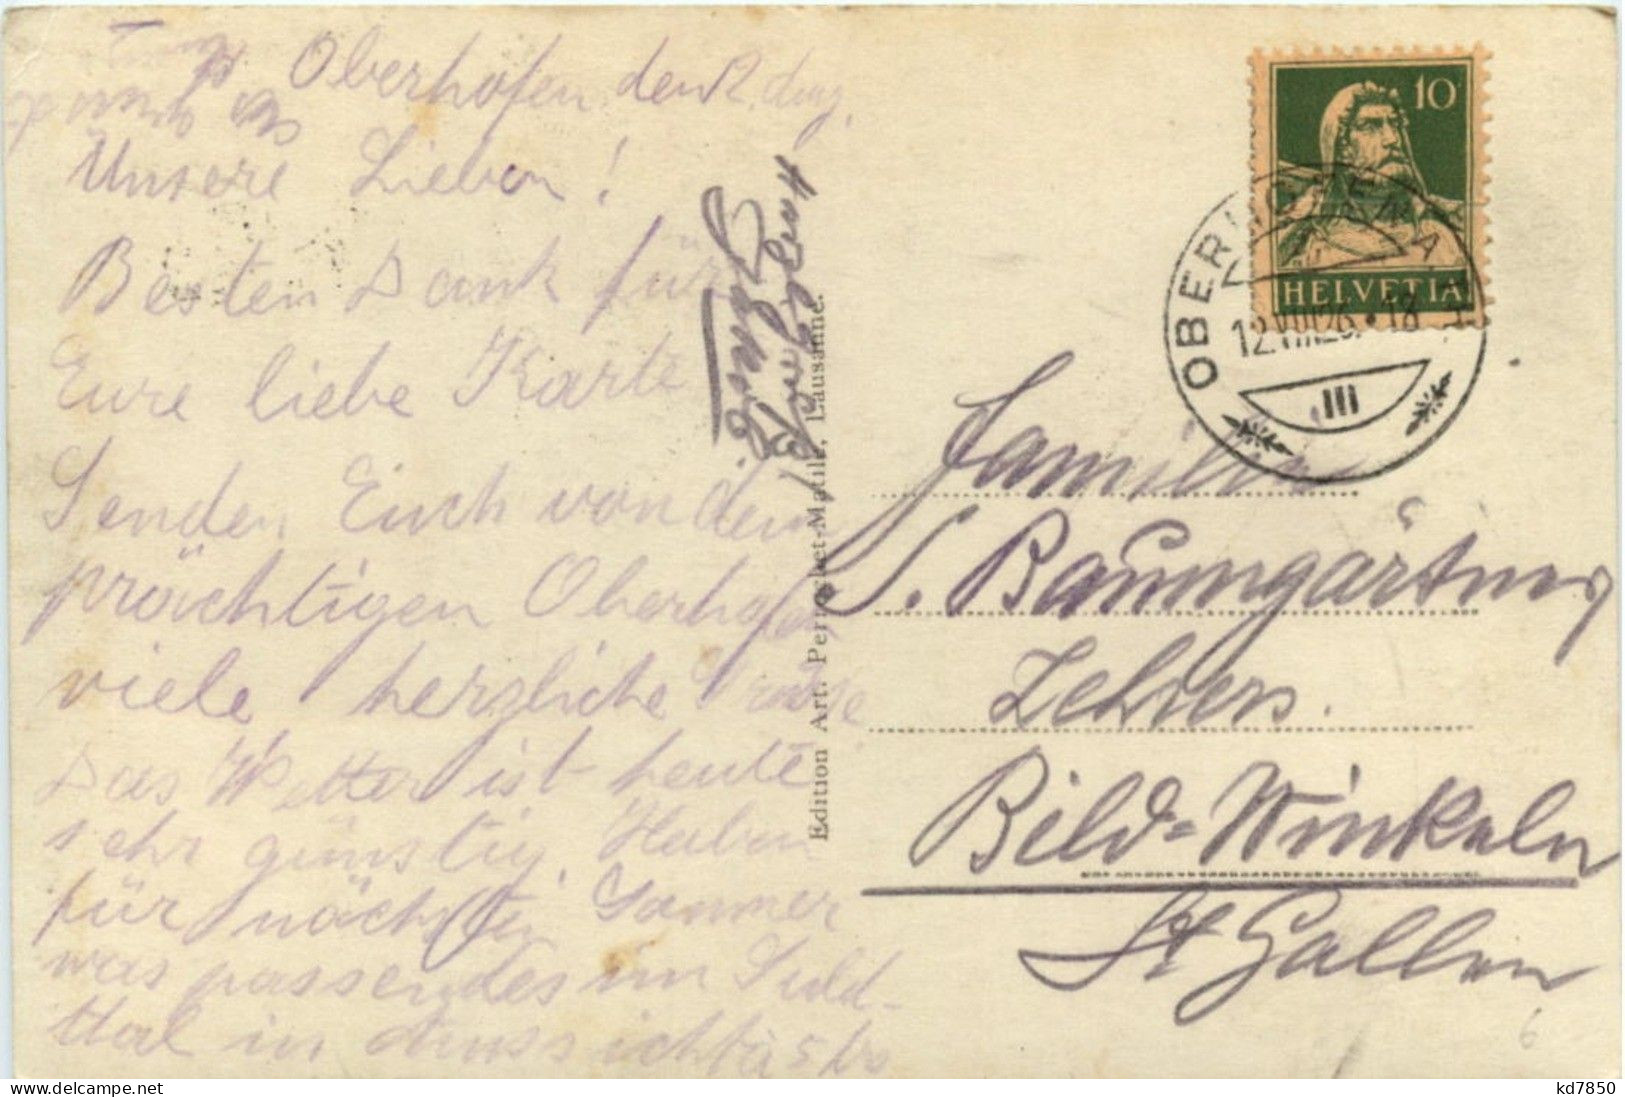 Oberhofen den 12. Aug.
Unsere Lieben!
Besten Dank für
Eure liebe Karte
Senden Euch von dem
prächtigen Oberhofen
viele herzliche Grüsse
Das Wetter ist heute
sehr günstig. Haben
für nächsten Sommer
was passendes im Suld-
tal in Aussicht
Edition Art. Perrochet-Matile, Lausanne.
10
HELVETIA
12.VIII.26.•18
III
Familie
S. Baumgärtner
Lehrers.
Bild=Winkeln
St Gallen
6
kd7850